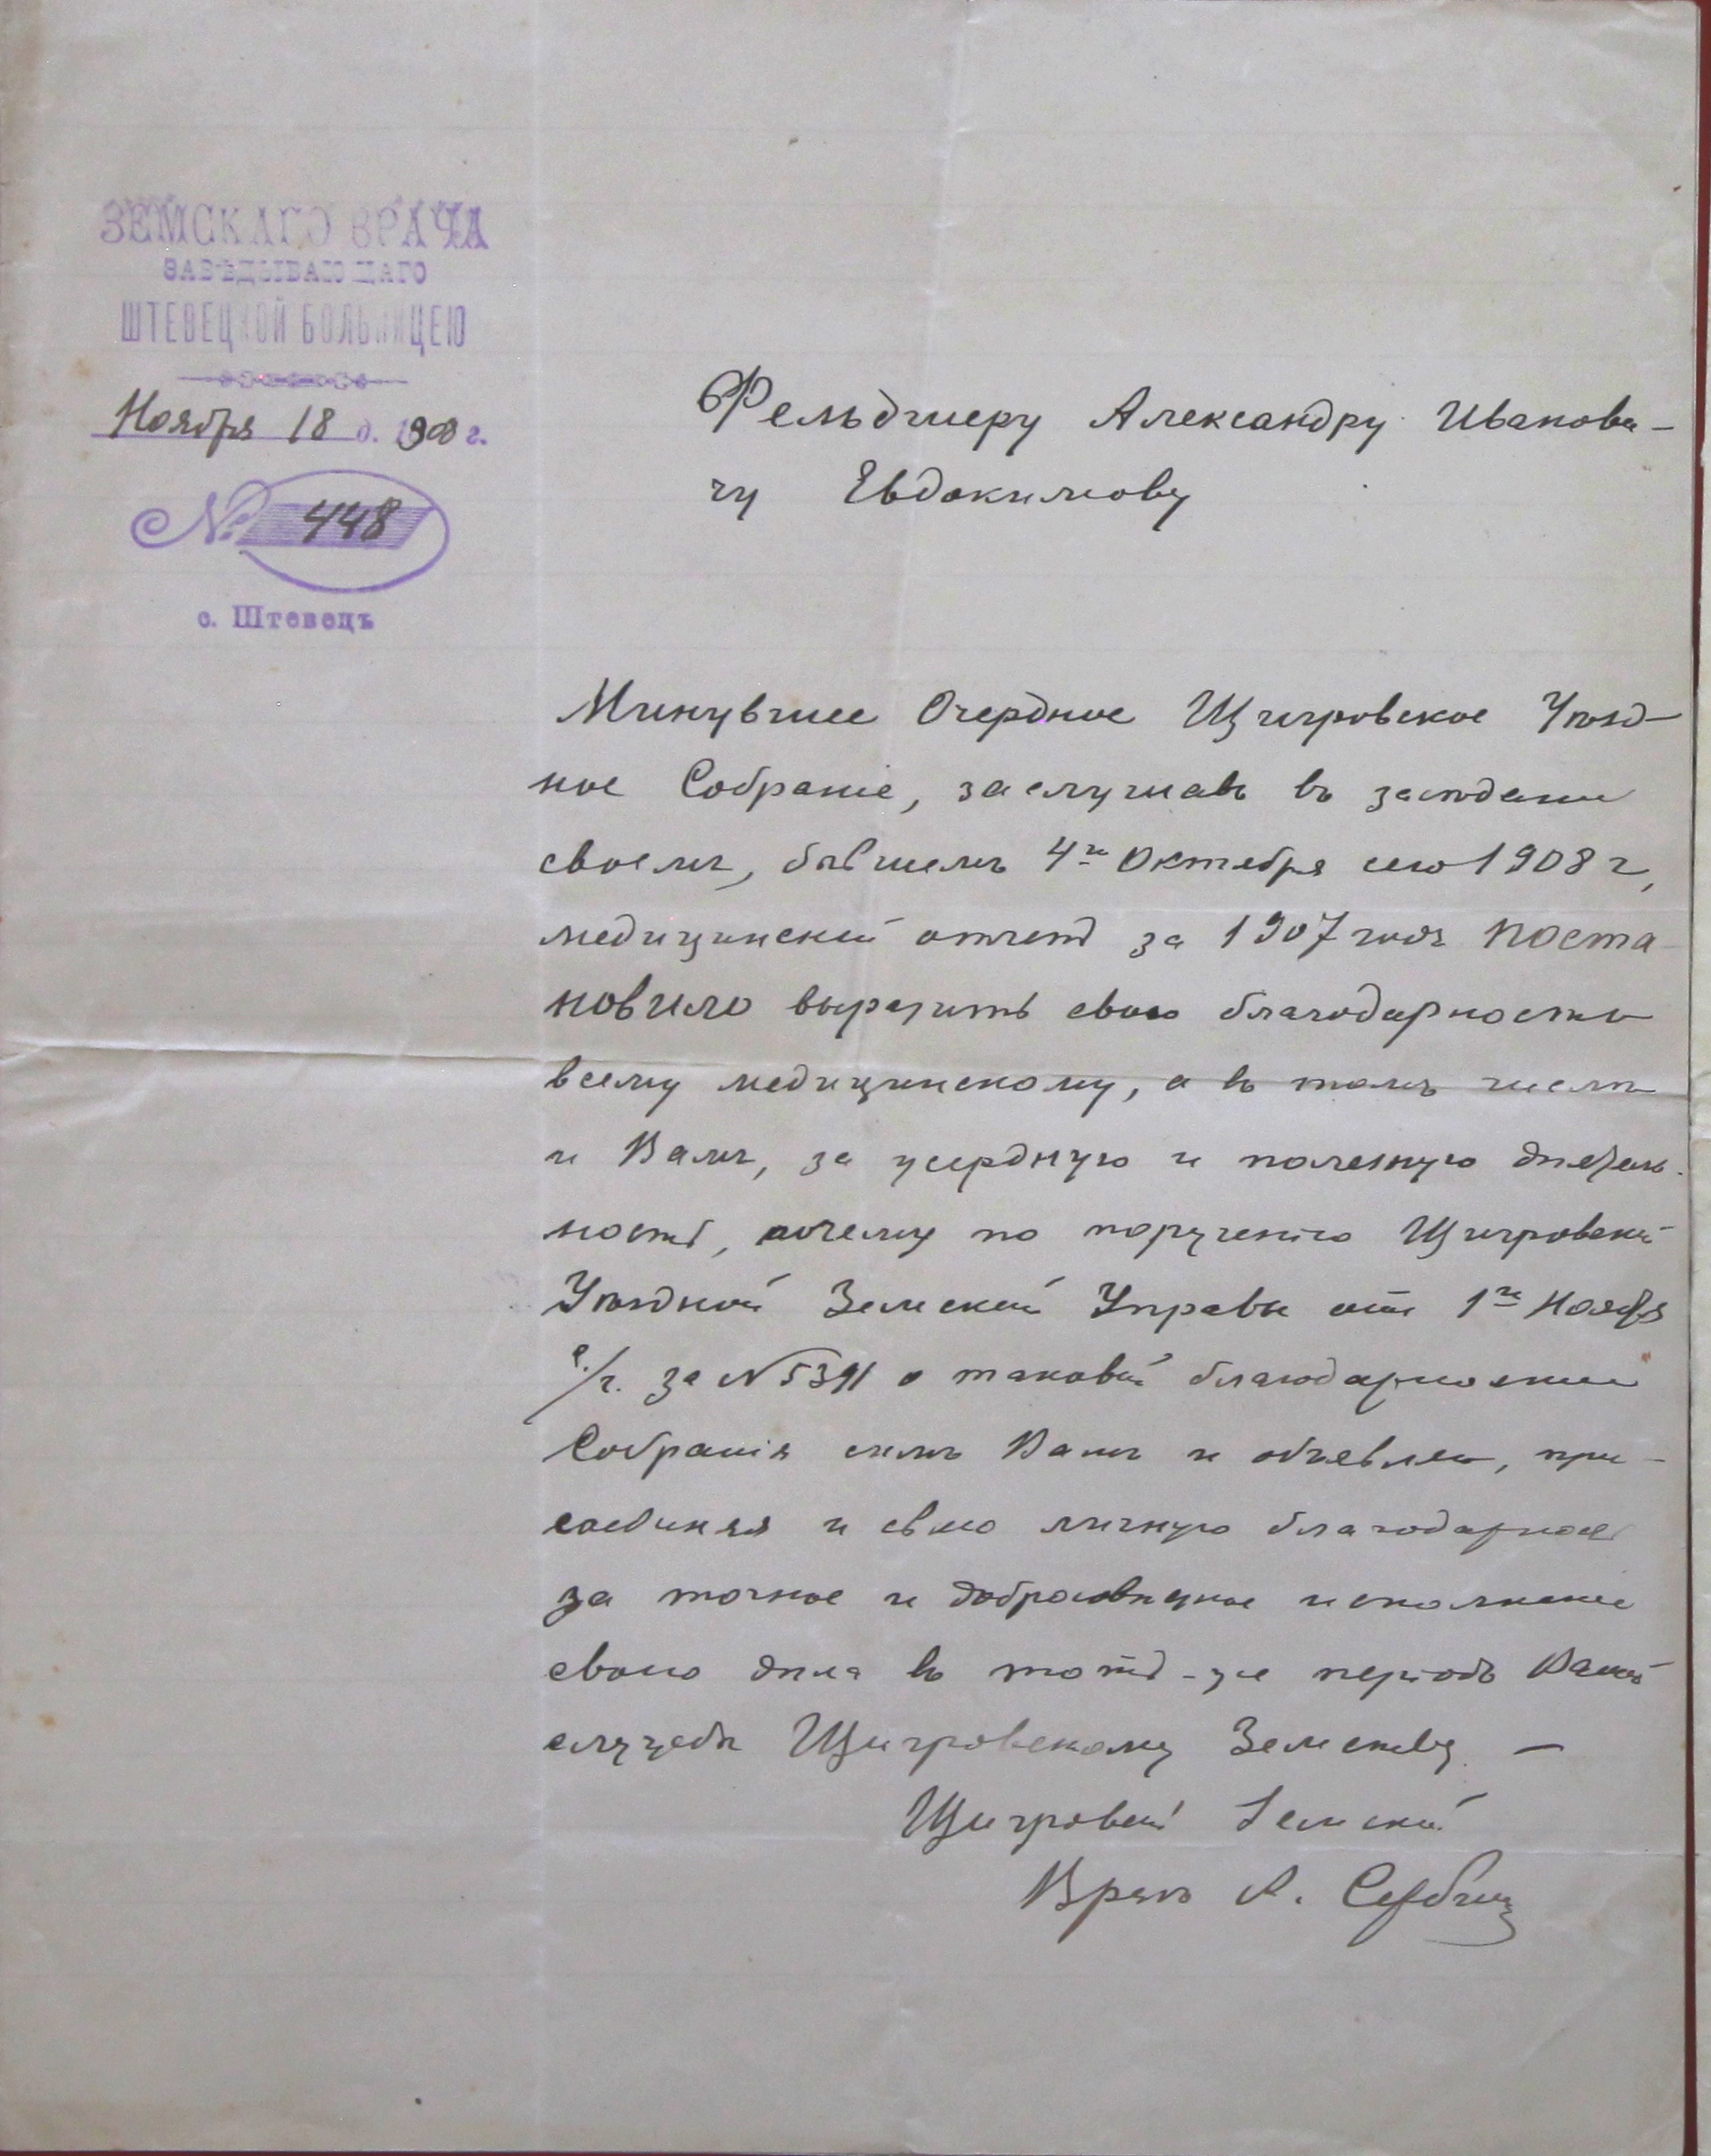 ЗЕМСКАГО ВРАЧА
ЗАВѢДЫВАЮЩАГО
ШТЕВЕЦКОЙ БОЛЬНИЦЕЮ
Ноября 18 д. 1908 г.
№ 448
с. Штевецъ
Фельдшеру Александру Иванови-
чу Евдокимову
Минувшее Очердное Щигровское Уѣзд-
ное Собраніе, заслушавъ въ засѣдании
своемъ, бывшемъ 4го Октября сего 1908 г,
медицинскій отчетъ за 1907 годъ поста
новило выразить свою благодарность
всему медицинскому, а въ томъ числѣ
и Вамъ, за усердную и полезную дѣятель-
ность, почему по порученію Щигровской
Уѣздной Земской Управы отъ 1го Ноября
с./г. за № 5391 о таковой благодарности
Собранія симъ Вамъ и объявляю, при-
соединяя и свою личную благодарность
за точное и добросовѣстное исполненіе
своего дѣла въ тотъ-же періодъ Вашей
службы Щигровскому Земству. —
Щигровскій Земскій
Врачъ А.